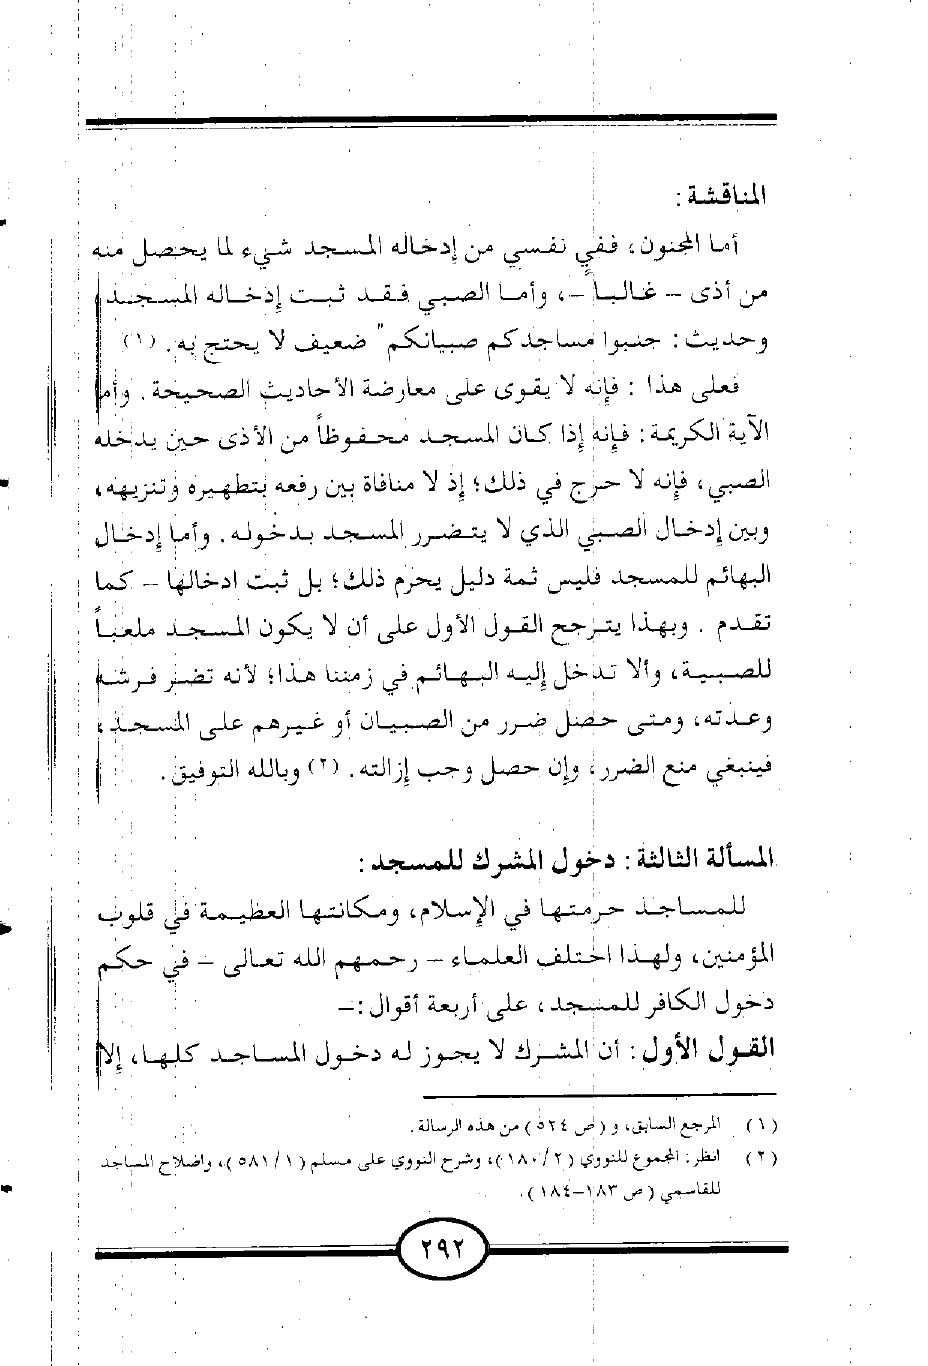 المناقشة :
أما المجنون، ففي نفسي من إدخاله المسجد شيء لما يحصل منه
من أذى – غالباً –، وأما الصبي فقد ثبت إدخاله المسجد
وحديث : جنبوا مساجدكم صبيانكم" ضعيف لا يحتج به . (١)
فعلى هذا : فإنه لا يقوى على معارضة الأحاديث الصحيحة . وأما
الآية الكريمة : فإنه إذا كان المسجد محفوظاً من الأذى حين يدخله
الصبي، فإنه لا حرج في ذلك؛ إذ لا منافاة بين رفعه بتطهيره وتنزيهه،
وبين إدخال الصبي الذي لا يتضرر المسجد بدخوله . وأما إدخال
البهائم للمسجد فليس ثمة دليل يحرم ذلك؛ بل ثبت ادخالها – كما
تقدم . وبهذا يترجح القول الأول على أن لا يكون المسجد ملعباً
للصبية، وألا تدخل إليه البهائم في زمننا هذا؛ لأنه تضر فرشه
وعدته، ومتى حصل ضرر من الصبيان أو غيرهم على المسجد،
فينبغي منع الضرر، وإن حصل وجب إزالته . (٢) وبالله التوفيق .
المسألة الثالثة : دخول المشرك للمسجد :
للمساجد حرمتها في الإسلام، ومكانتها العظيمة في قلوب
المؤمنين، ولهذا اختلف العلماء – رحمهم الله تعالى – في حكم
دخول الكافر للمسجد، على أربعة أقوال :–
القول الأول : أن المشرك لا يجوز له دخول المساجد كلها، إلا
(١) المرجع السابق، و (ص ٥٢٤) من هذه الرسالة .
(٢) انظر : المجموع للنووي (٢/ ١٨٠)، وشرح النووي على مسلم (١/ ٥٨١)، واصلاح المساجد
للقاسمي (ص ١٨٣–١٨٤) .
٢٩٢